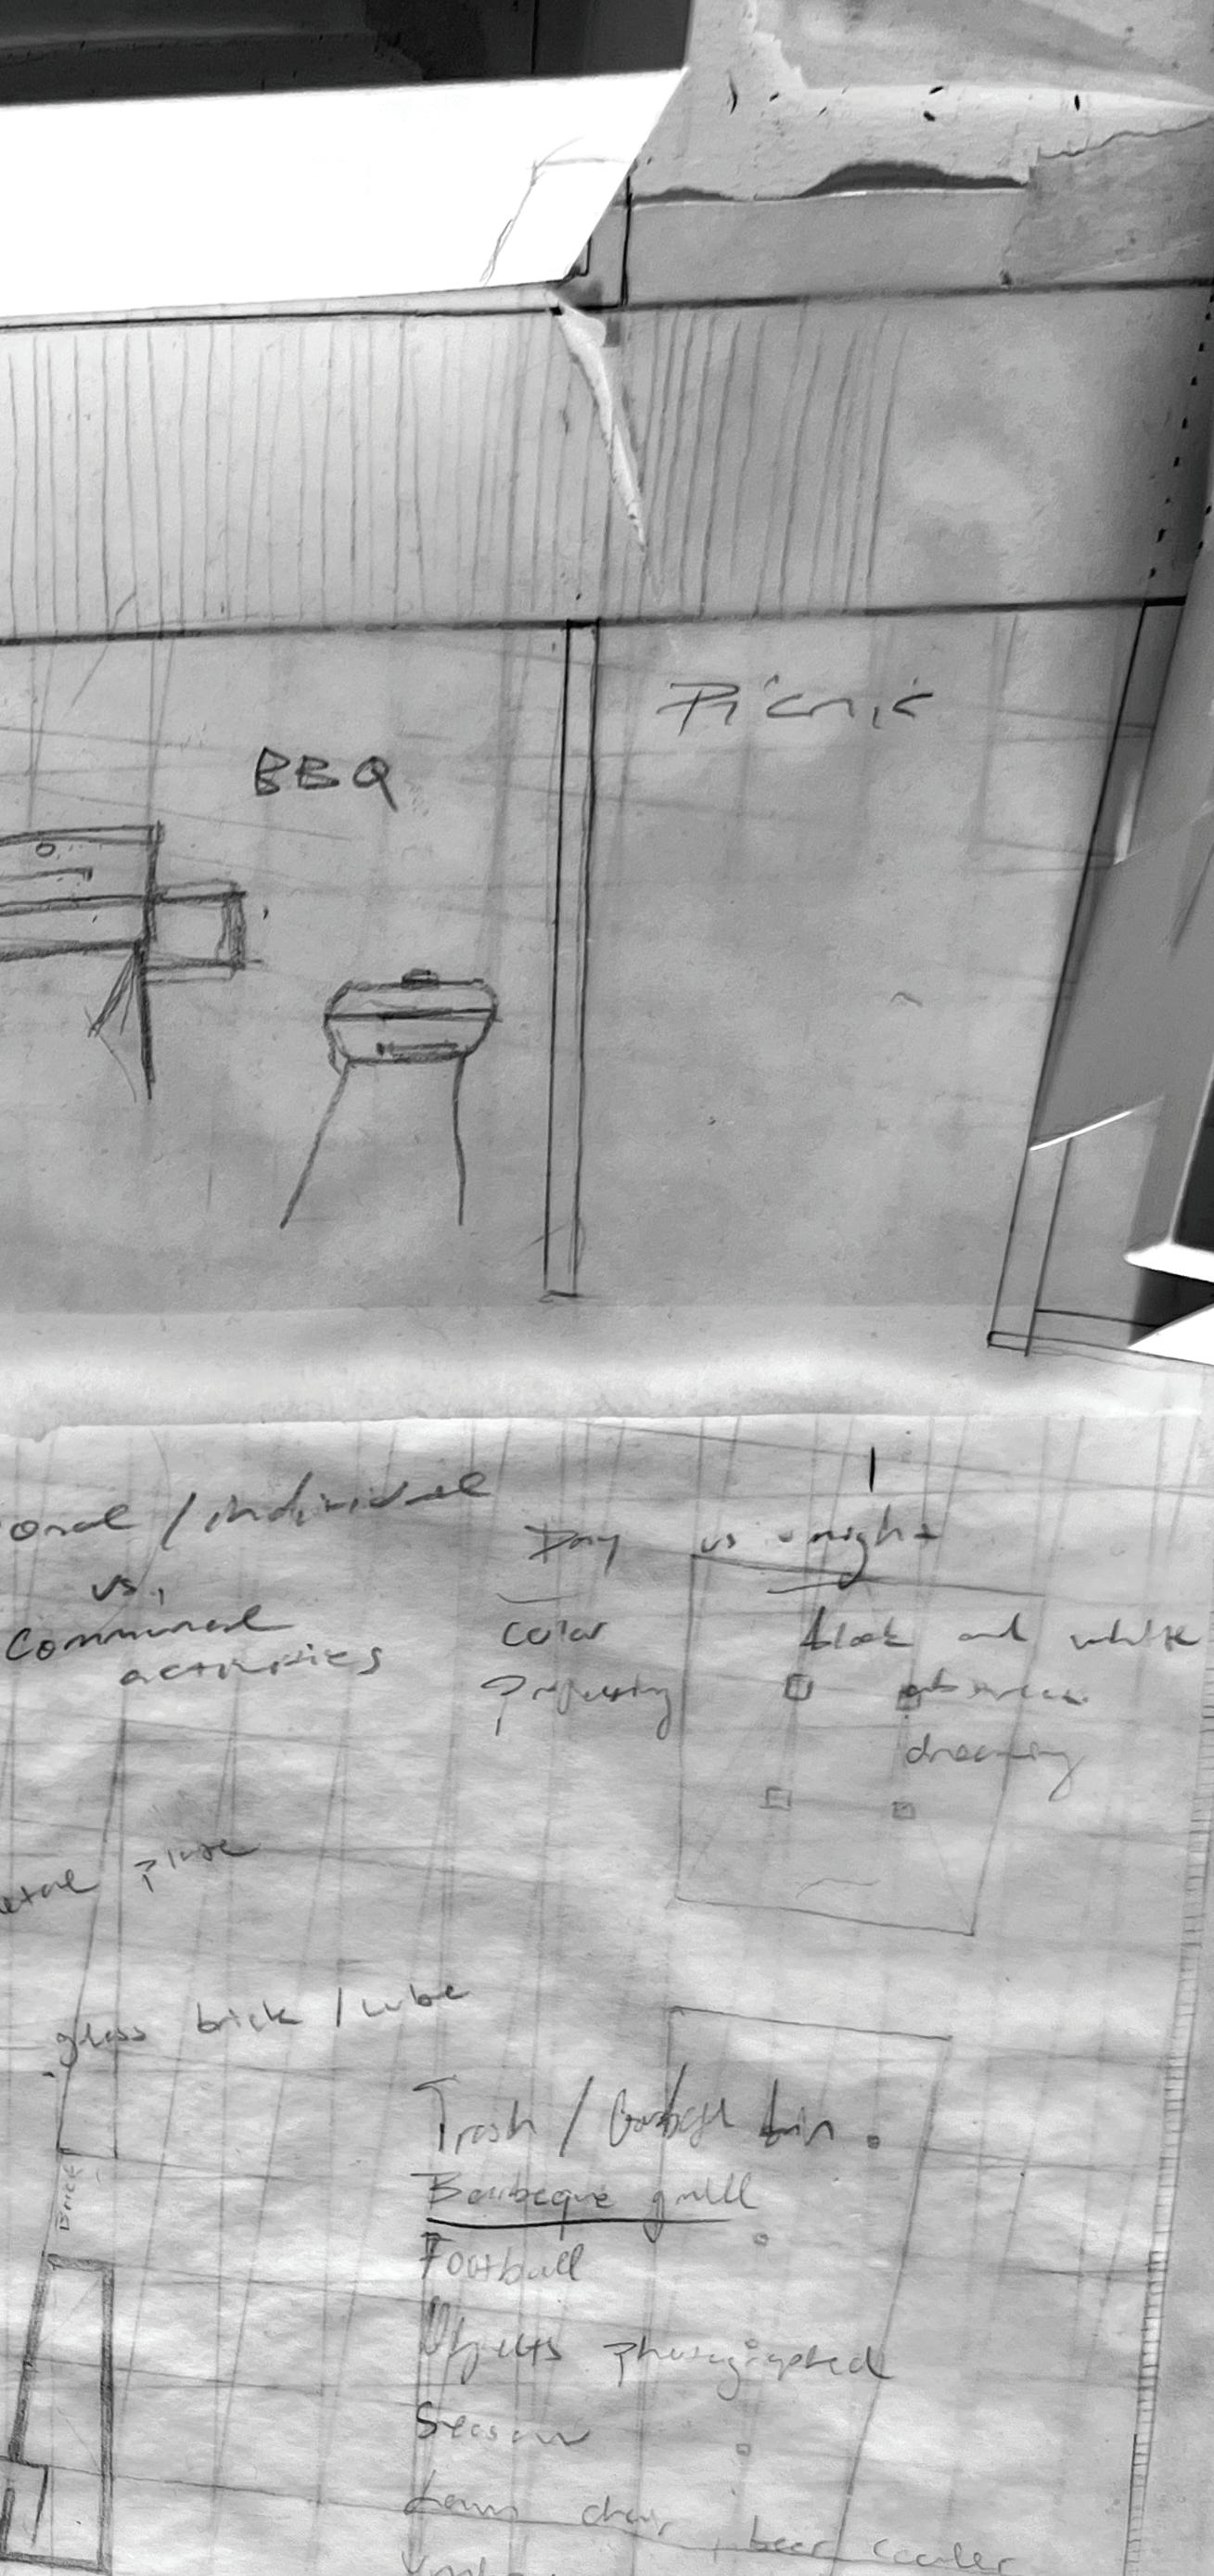 Picnic
BBQ
onal / individual
vs.
Communal
activities
Day vs night
Color
black and white
dreaming
plate
glass brick / cube
Brick
Trash / Garbage bin
Barbeque grill
Football
Objects photographed
Season
Lawn chair, beer cooler